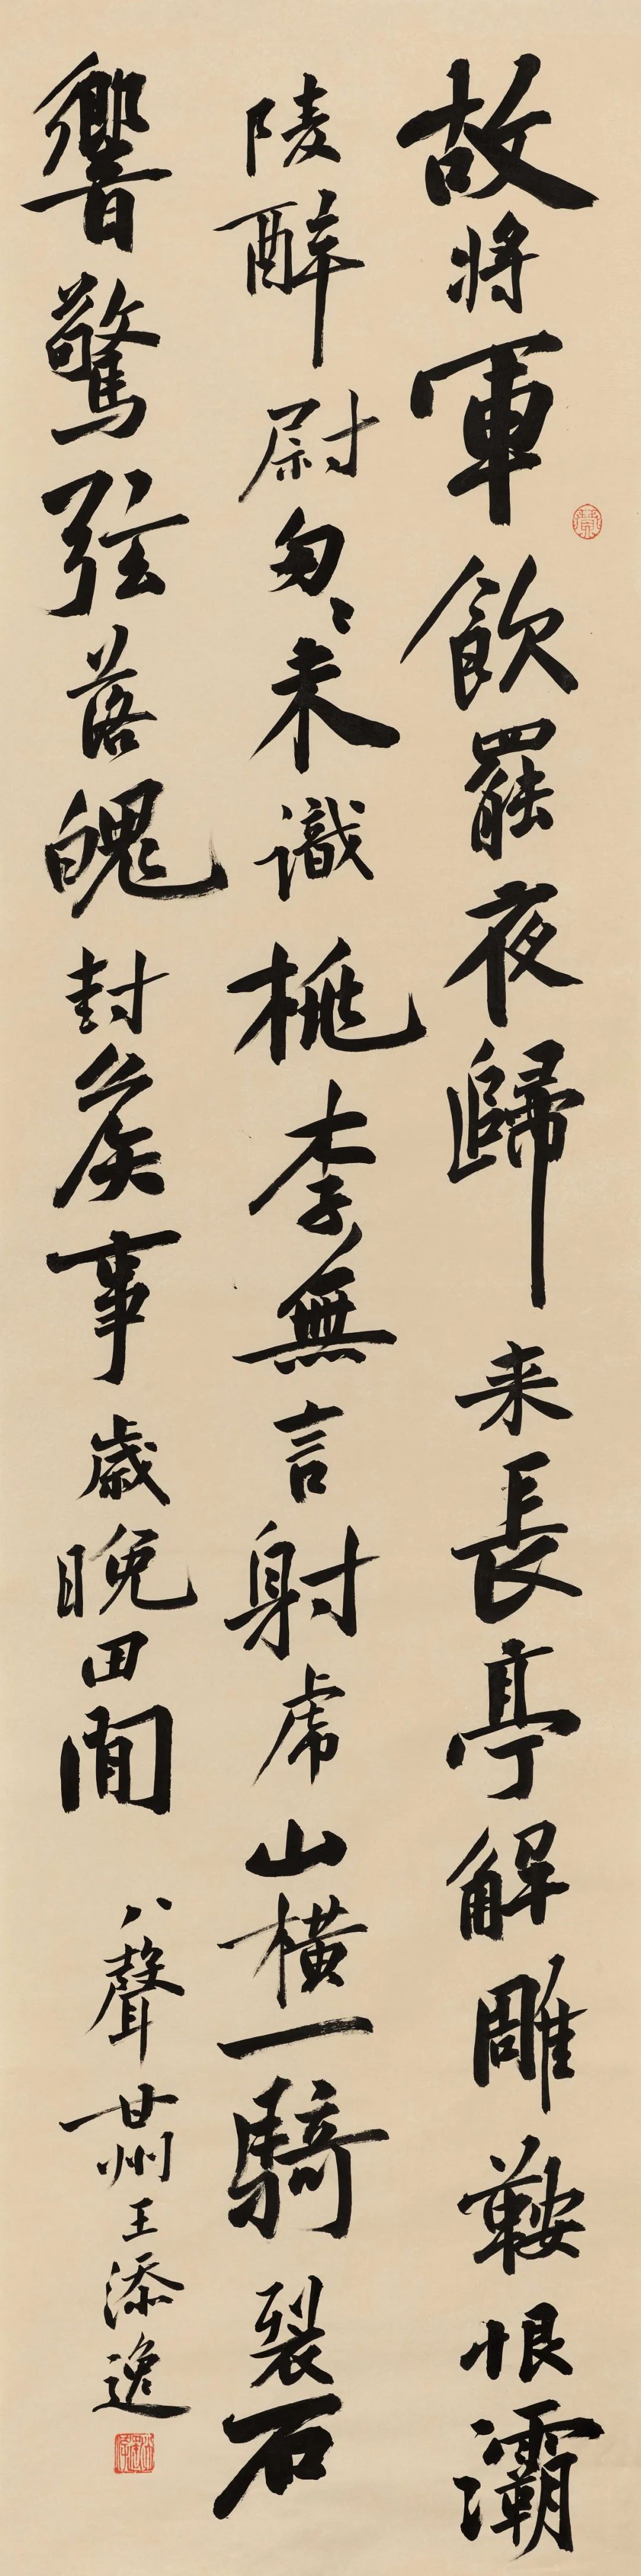 故將軍飲罷夜歸来長亭解雕鞍恨灞
陵醉尉匆〻未識桃李無言射虎山橫一騎裂石
響驚弦落魄封矦事歲晚田間
八聲甘州王添逸